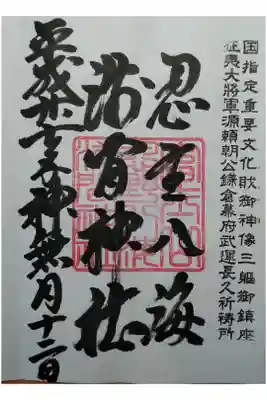 国指定重要文化財御神像三躯御鎮座
征夷大將軍源頼朝公鎌倉幕府武運長久祈祷所
忍野八海
浅間神社
平成神無月十二日